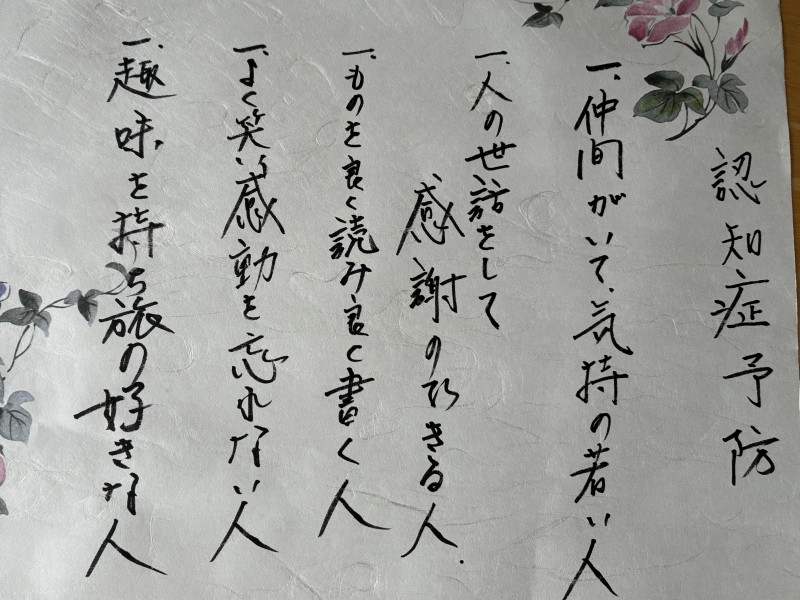 認知症予防
一、仲間がいて、気持の若い人
一、人の世話をして
感謝のできる人.
一、ものを良く読み良く書く人
一、よく笑い感動を忘れない人
一、趣味を持ち旅の好きな人